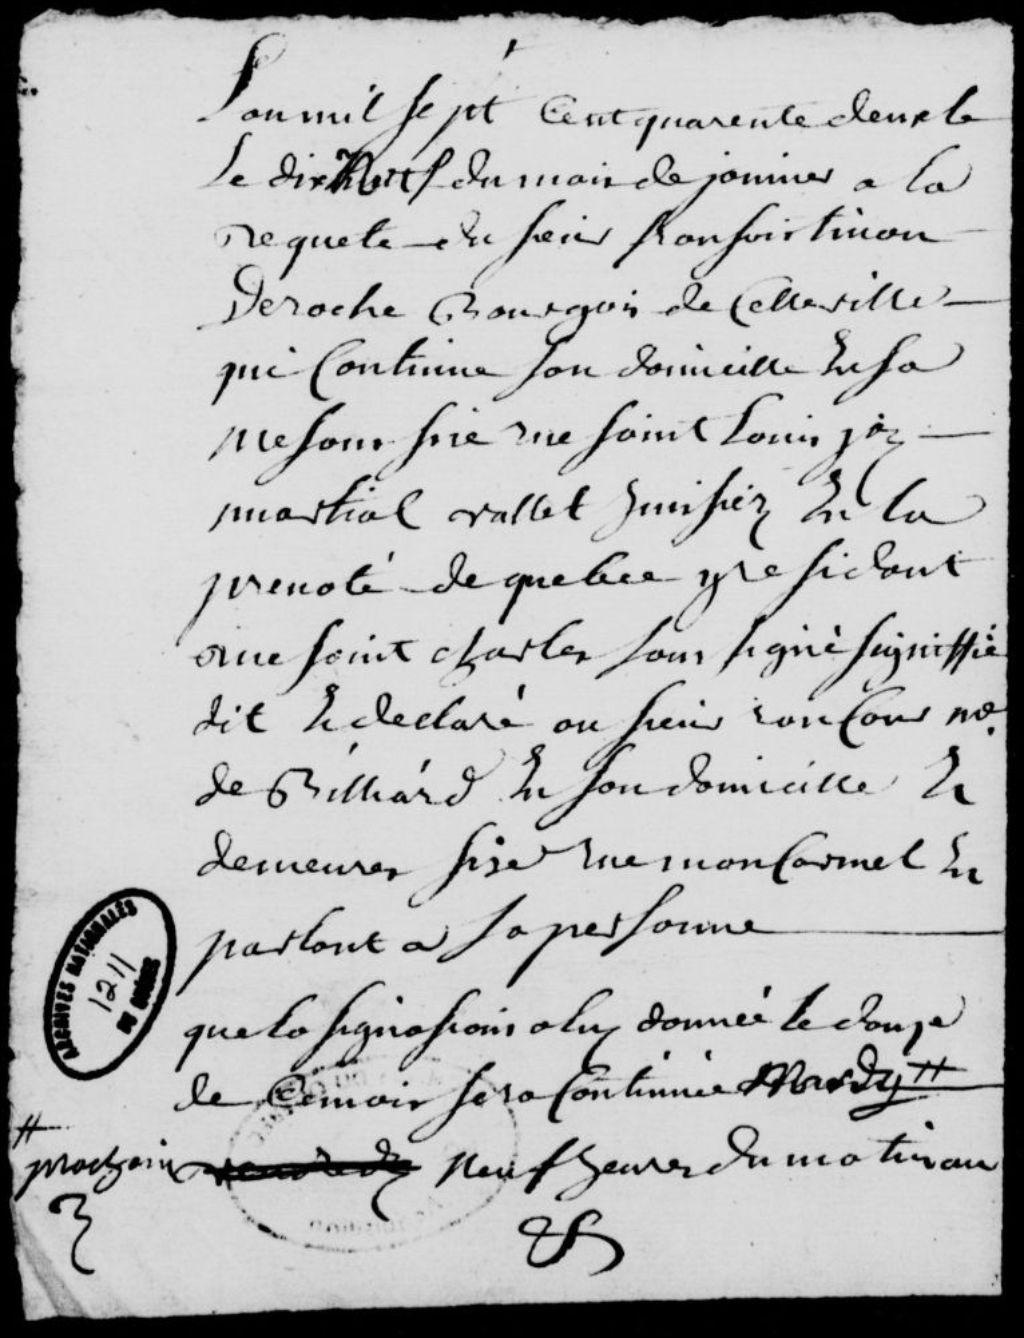 Lan mil sept Cent quarente deux le
Le dix Neuf du mois de janvier a la
requete du sieur fransois tinon
Deroche Bourgois de Cette ville
qui Continue son domicille En sa
Meson sise rue saint Louis je
martial vallet huissier En la
prevoté de quebec y residant
rue saint charles sous signé signiffié
dit Et declaré au sieur roncour me
de Billiard En son domicille Et
demeures sise rue mon Carmel En
parlant a sa personne
que la signasion a luy donnée le douze
de Ce mois sera Continuée Mardy #
# prochain vendredy Neuf heures du matin au
ARCHIVES NATIONALES
1211
DU QUÉBEC